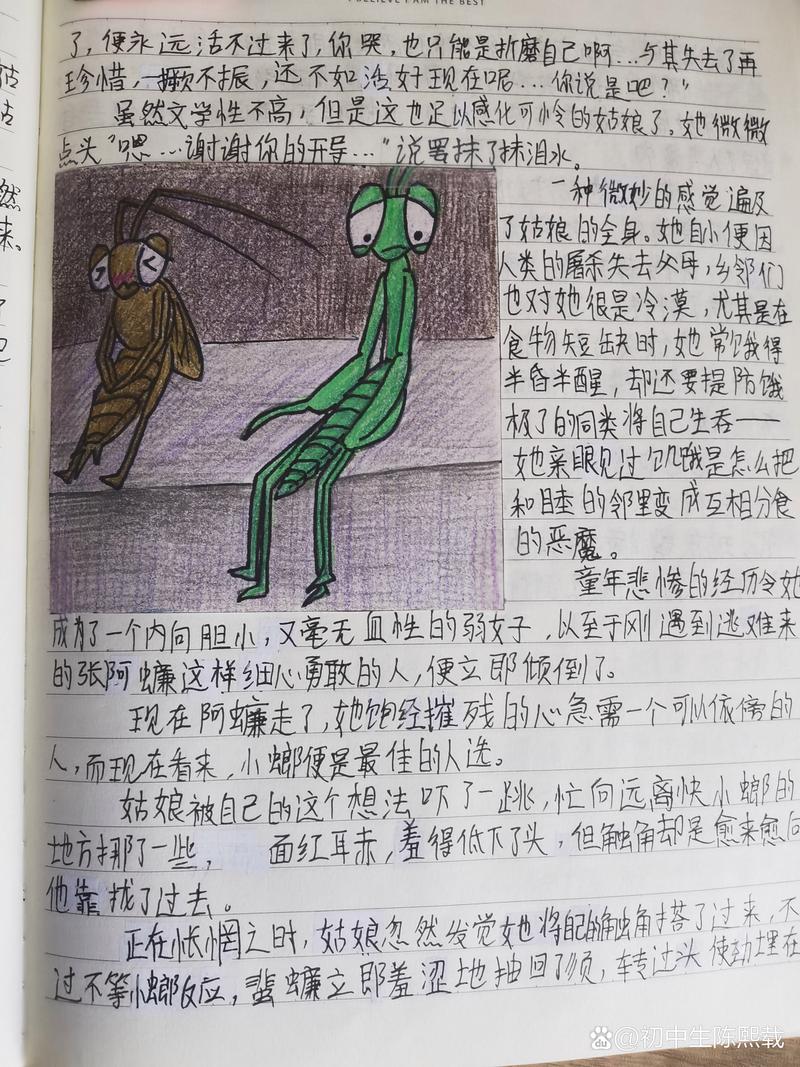 I BELIEVE I AM THE BEST
了，便永远活不过来了，你哭，也只能是折磨自己啊…与其失去了再
珍惜，一蹶不振，还不如活好现在呢…你说是吧？”
虽然文学性不高，但是这也足以感化可怜的姑娘了。她微微
点头“嗯…谢谢你的开导…”说罢抹了抹泪水。
一种微妙的感觉遍及
了姑娘的全身。她自小便因
人类的屠杀失去父母，乡邻们
也对她很是冷漠，尤其是在
食物短缺时，她常饿得
半昏半醒，却还要提防饿
极了的同类将自己生吞——
她亲眼见过饥饿是怎么把
和睦的邻里变成互相分食
的恶魔。
童年悲惨的经历令她
成为了一个内向胆小，又毫无血性的弱女子，以至于刚遇到逃难来
的张阿蠊这样细心勇敢的人，便立即倾倒了。
现在阿蠊走了，她饱经摧残的心急需一个可以依傍的
人，而现在看来，小螂便是最佳的人选。
姑娘被自己的这个想法吓了一跳，忙向远离快小螂的
地方挪了一些，面红耳赤，羞得低下了头，但触角却是愈来愈向
他靠找了过去。
正在怅惘之时，姑娘忽然发觉她将自己的触角搭了过来，不
过不等小螂反应，蜚蠊立即羞涩地抽回了须，转过头使劲埋在
姑
姑
然
来。
了
@初中生陈熙载